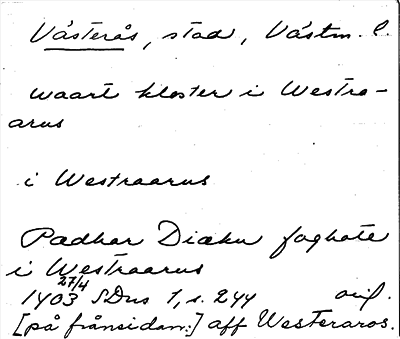 Västerås, stad, Västm. l.
waart kloster i Westra-
arus
i Westraarus
Pædhar Diækn foghote
i Westraarus
1403 27/4 SDns 1, s. 244 orig.
[på frånsidan:] aff Westeraros.